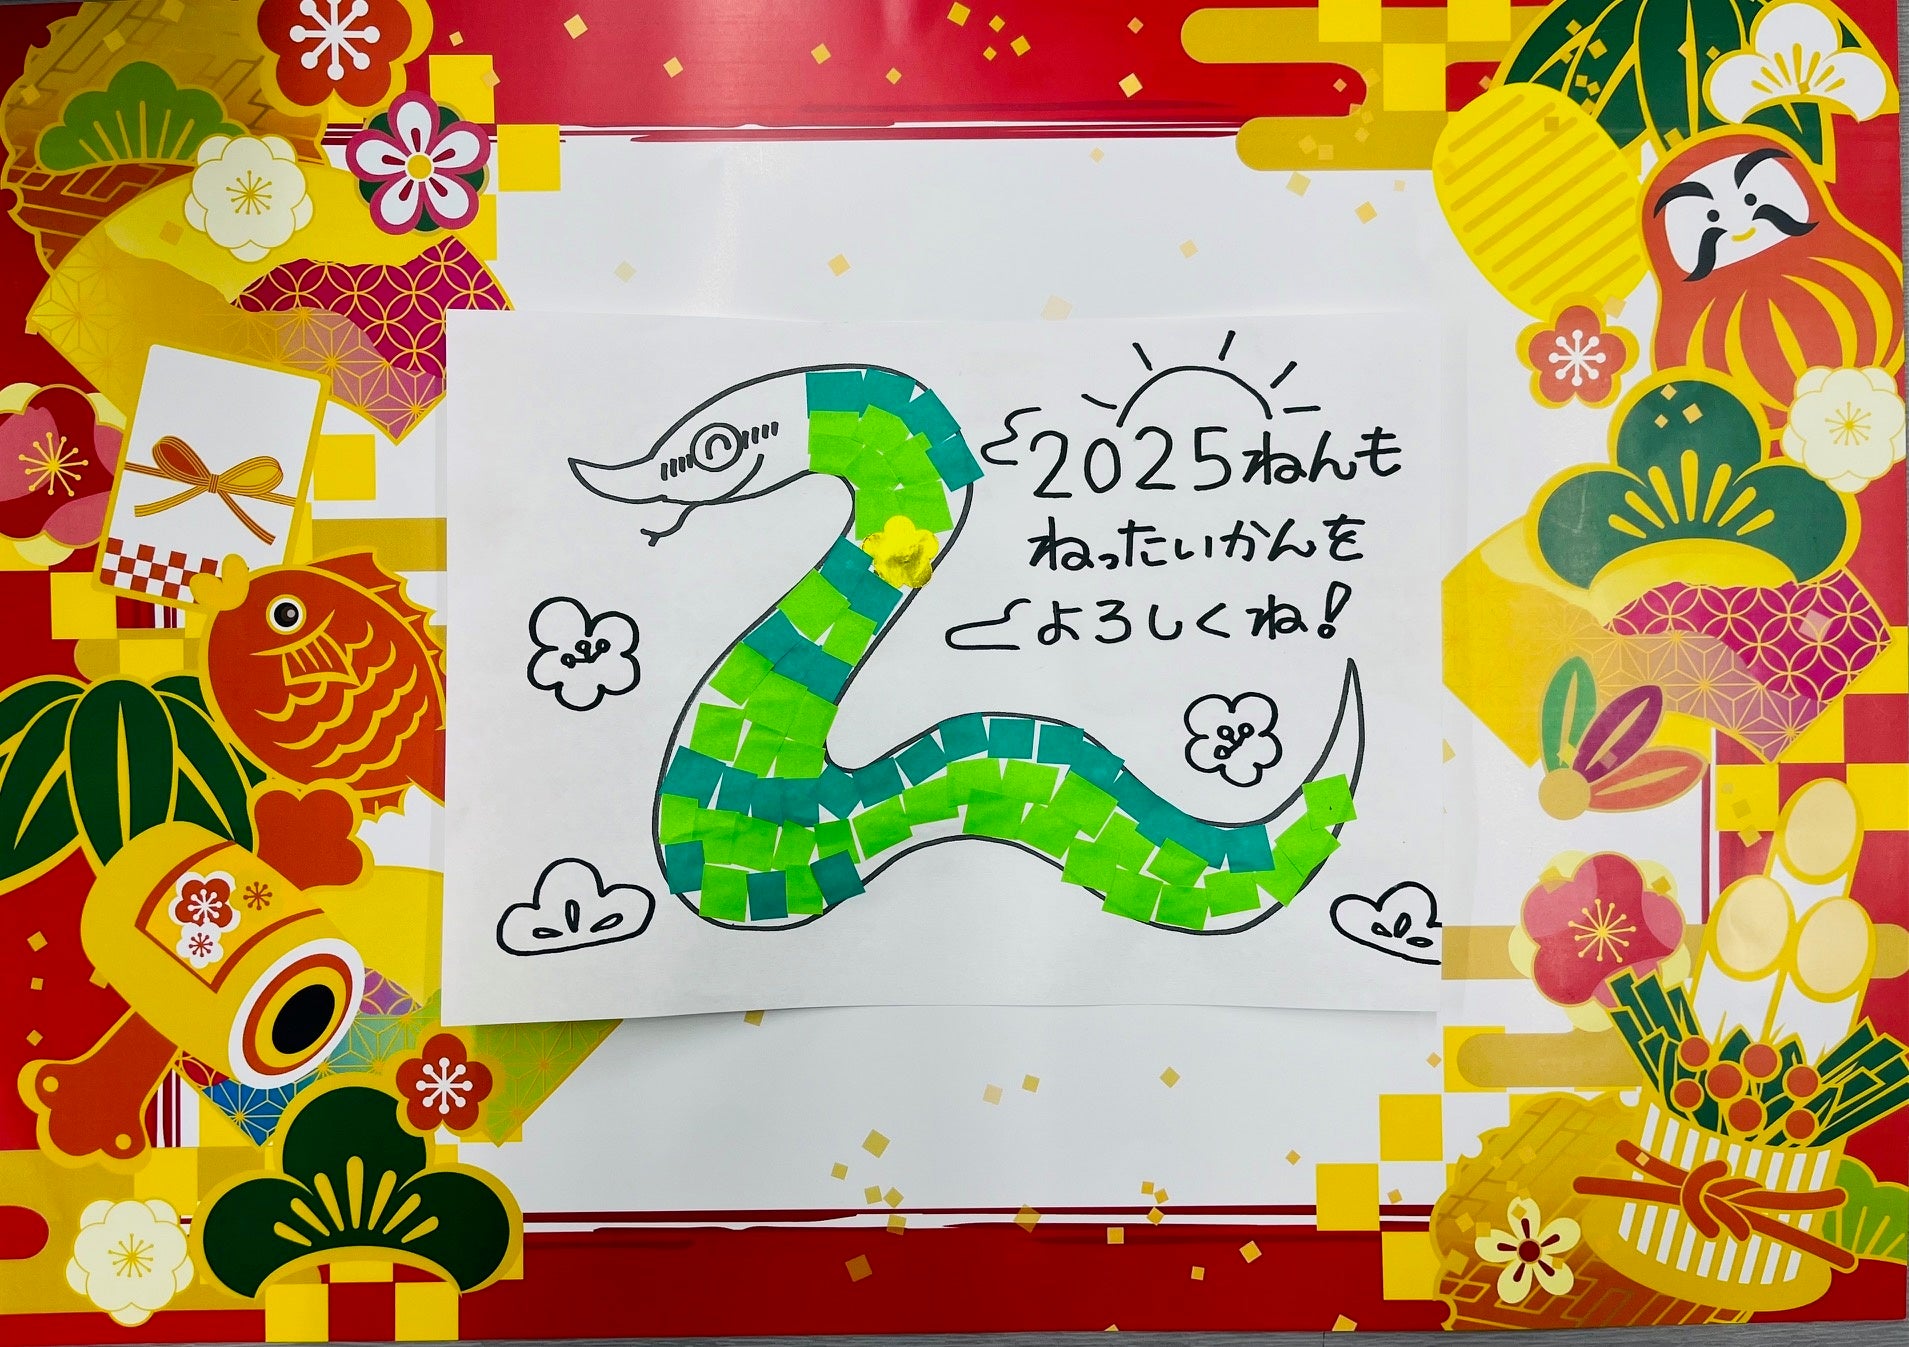 2025ねんも
ねったいかんを
よろしくね!